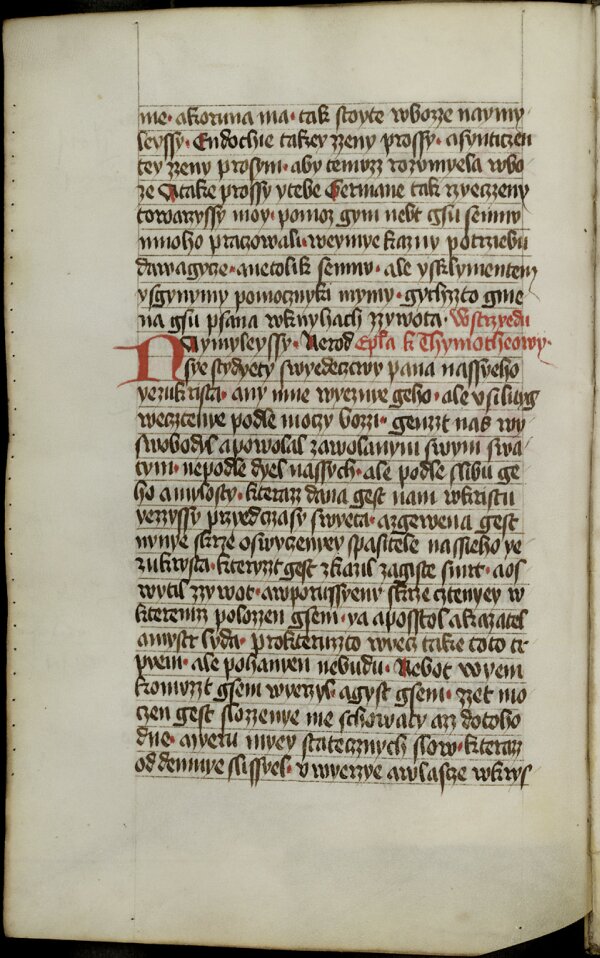 me· akoruna ma· tak stoyte wbozze naymy
leyssy· Endochie takey zzeny prossy· asynticzen
tey zzeny prosym· aby temuz rozomyela wbo
ze Atake prossy ytebe Germane tak rzyeczeny
towarzyssy moy· pomoz gym nebt gsu semnu
mnoho praczowali· weymye kazny potrziebu
dawagycze· anetolik semnu· ale ysklymentem
ysgynymy pomocznyki mymy· gychzto gme
na gsu psana wknyhach zzywota· Wstrzyedu
Naymyleyssy· Nerod Epla k Thymotheowy·
sye stydyety swyedeczwy pana nassyeho
yezukrista· any mne wyeznye geho· ale vsiliug
wecztenye podle moczy bozzi· genzt nas wy
swobodyl apowolal zawolanym swym swa
tym· nepodle dyel nassych· ale podle slibu ge
ho amylosty· kteraz dana gest nam wkristu
yezzyssy przyedczasy swyeta· azgewena gest
nynye skrze oswyczenyey spasitele nassieho ye
zukrysta· kteryzt gest zkazil zagiste smrt· aos
wytil zzywot· awporussyeny skrze cztenyey w
kteremz polozzen gsem· ya aposstol akazatel
amystr lyda· prokteruzto wyecz take toto tr
pyem· ale pohanyen nebudu· Nebot woyem
komuzt gsem wyerzyl· agyst gsem· zzet mo
czen gest slozzenye me schowaty az dotoho
dne· aweru myey statecznych slow· kteraz
od demnye slissyel· v wyerzye awlasze wkrys